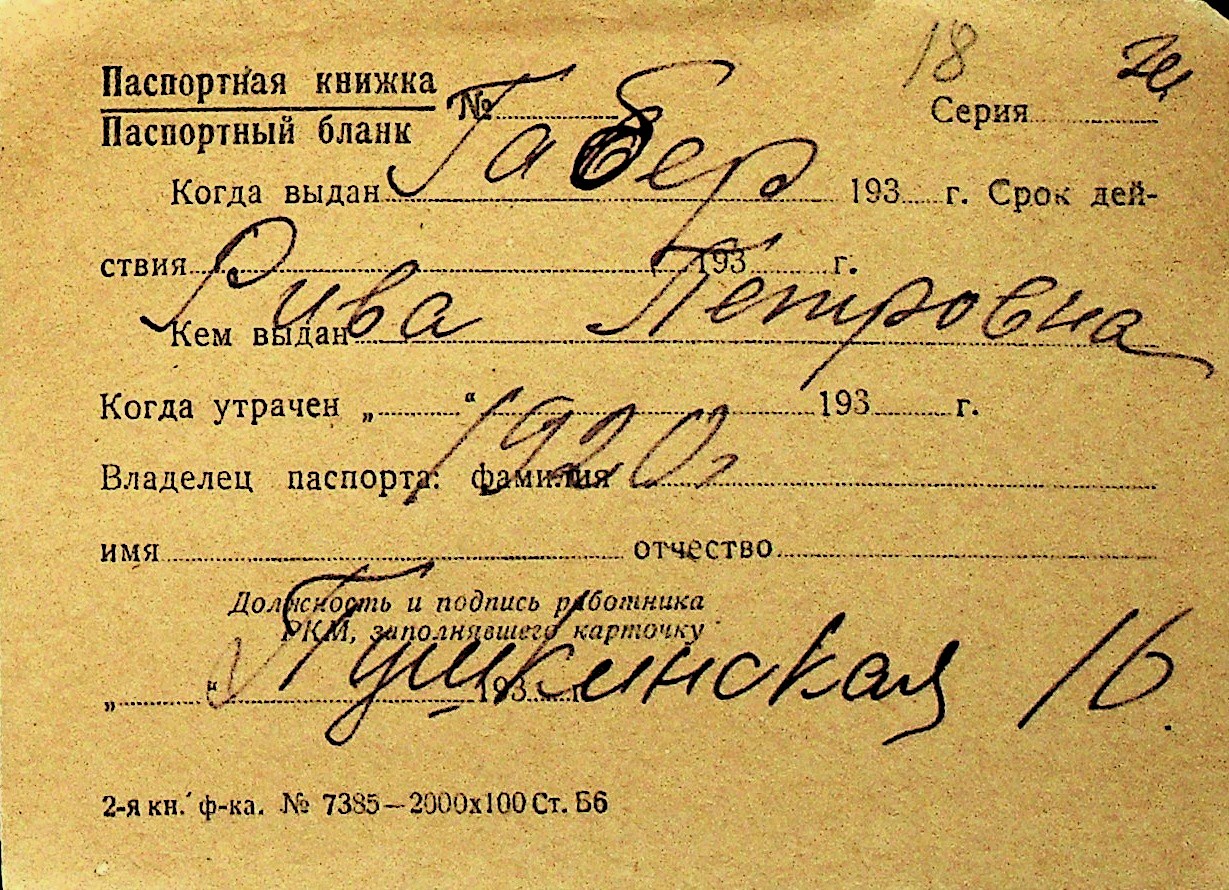 18 
Паспортная книжка
Паспортный бланк № Серия
Габер
Когда выдан 193 г. Срок дей-
ствия 193 г.
Рива Петровна
Кем выдан
Когда утрачен „ “ 193 г.
1920 г
Владелец паспорта: фамилия
имя отчество
Должность и подпись работника
РКМ, заполнявшего карточку
Пушкинская 16.
„ “ 193 г.
2-я кн. ф-ка. № 7385—2000х100 Ст. Б6